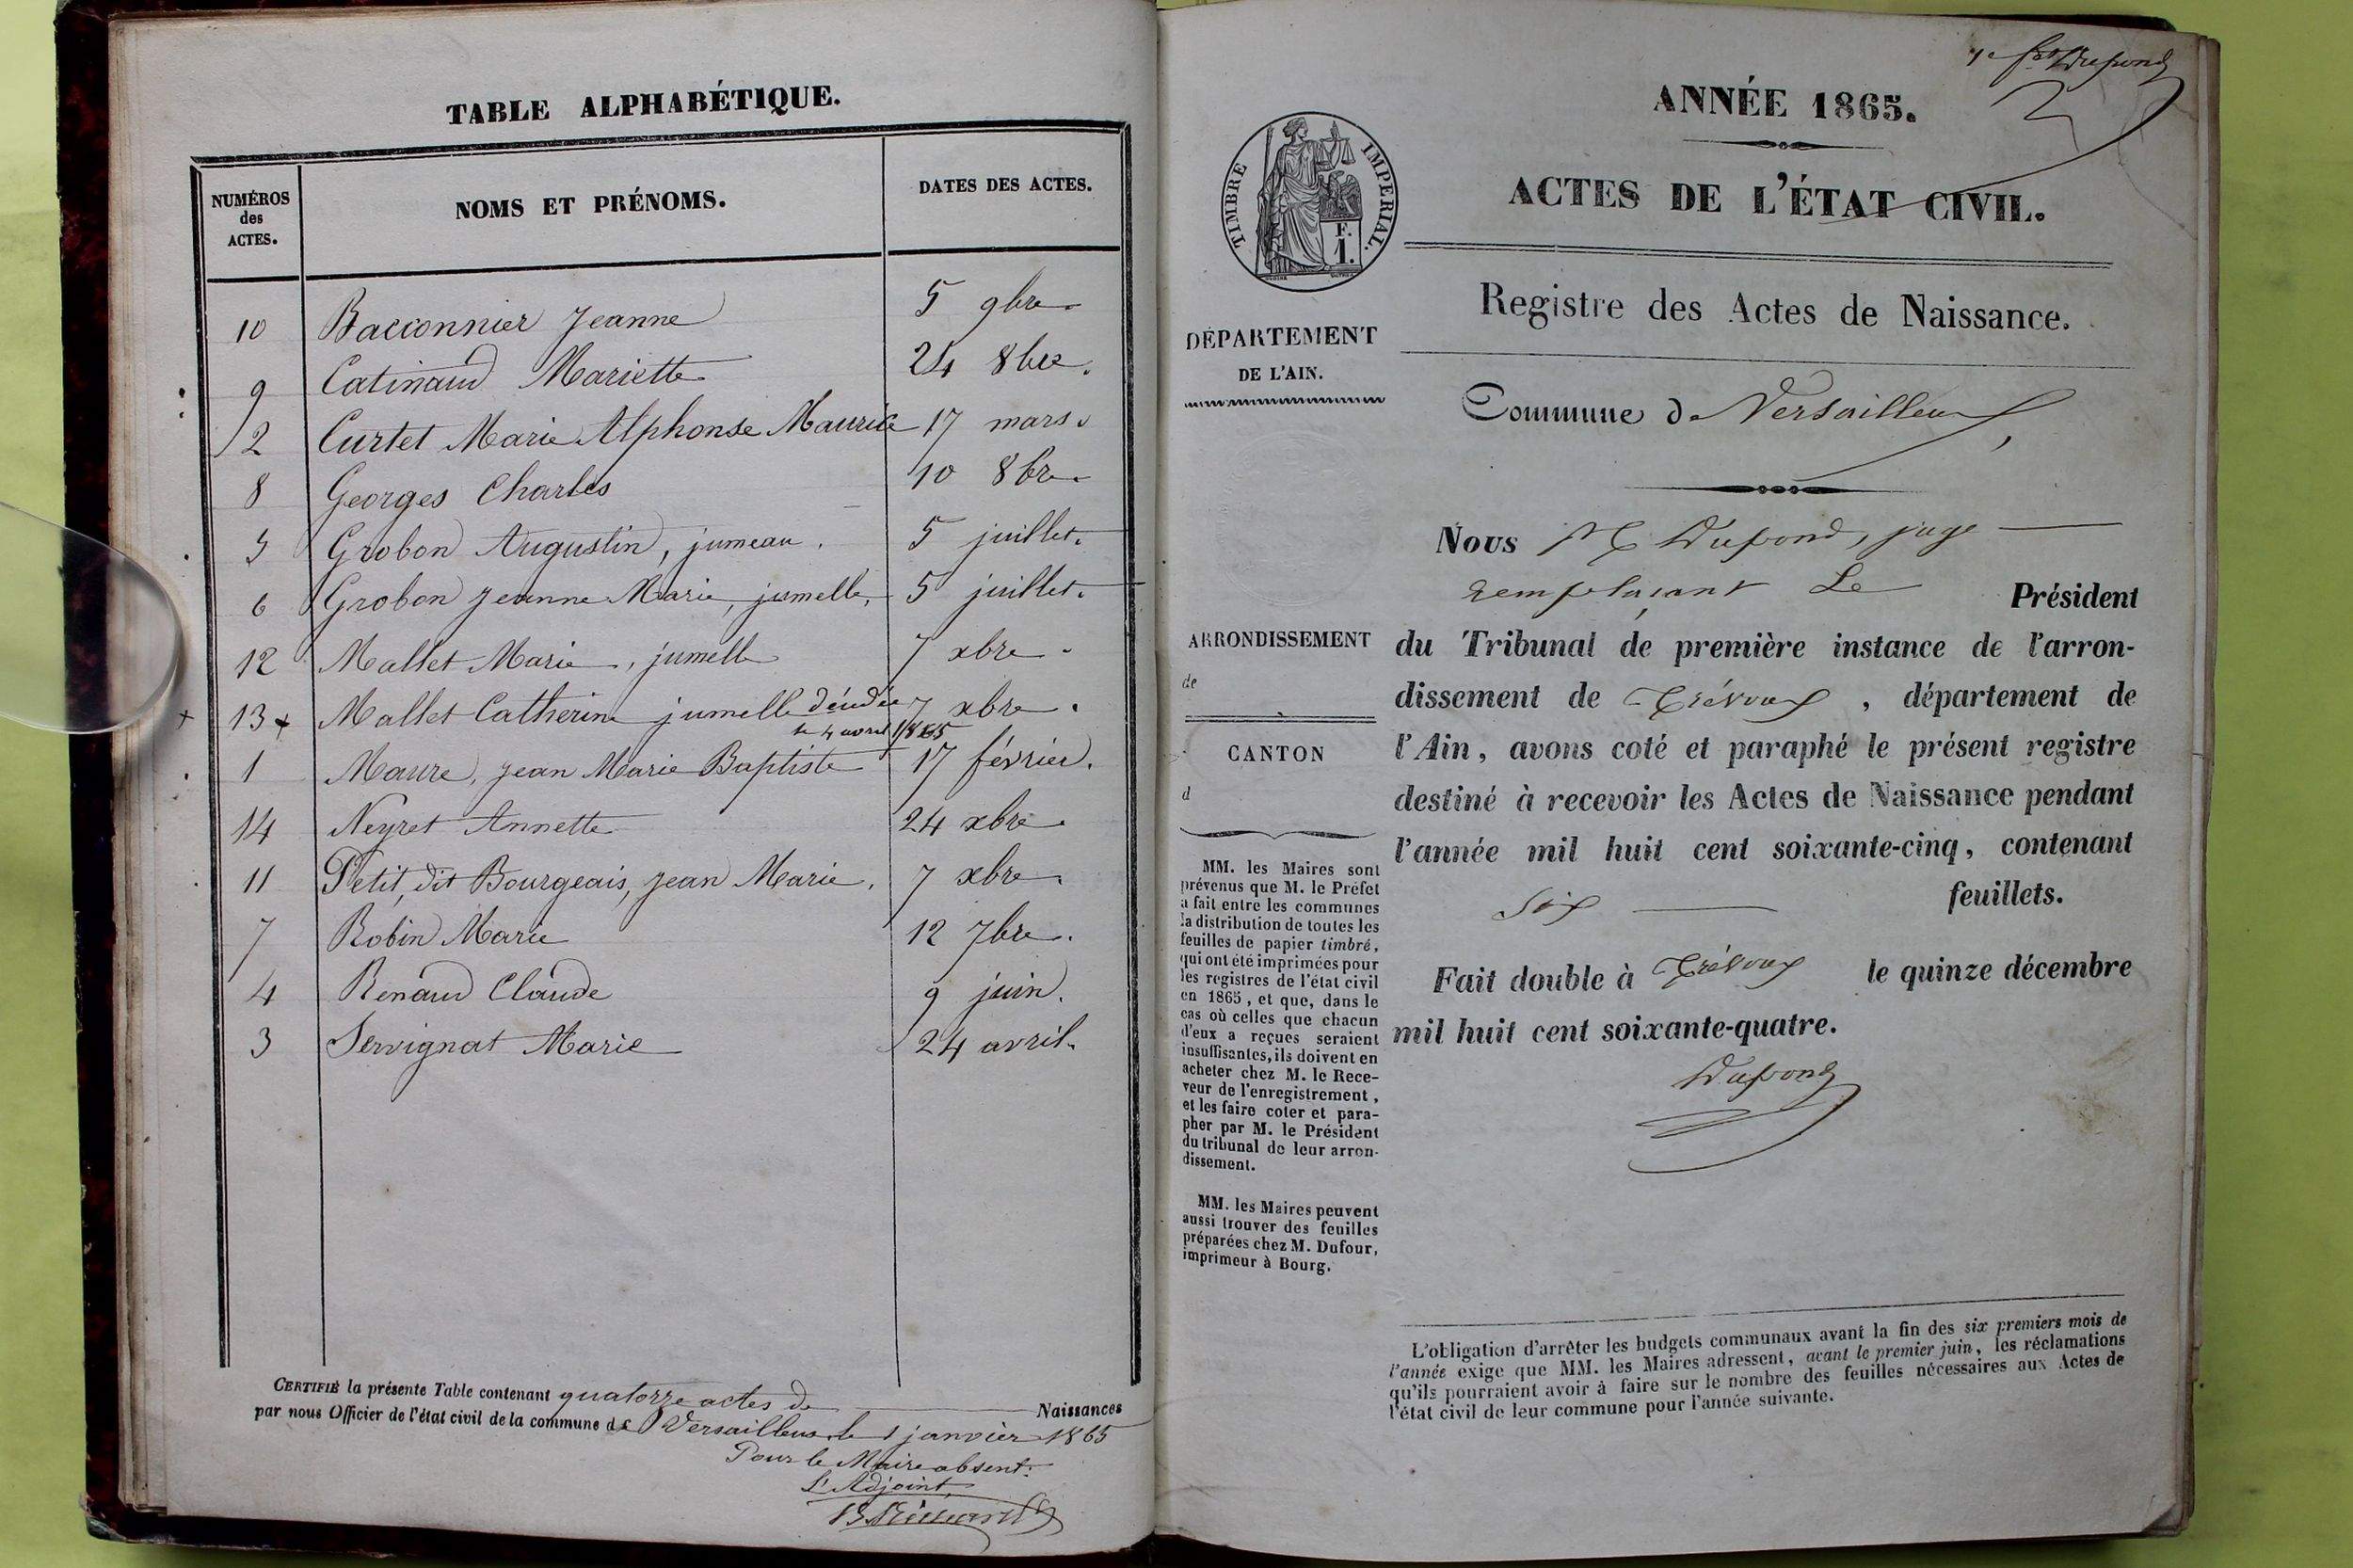 TABLE ALPHABÉTIQUE.
NUMÉROS des ACTES. NOMS ET PRÉNOMS. DATES DES ACTES.
10 Bacconnier Jeanne 5 9bre.
9 Catinaud Mariette 24 8bre.
2 Curtet Marie Alphonse Maurice 17 mars.
8 Georges Charles 10 8bre.
5 Grobon Augustin, jumeau. 5 juillet.
6 Grobon Jeanne Marie, jumelle, 5 juillet.
12 Mallet Marie, jumelle 7 xbre.
13 + Mallet Catherine jumelle décédée 7 xbre.
le 4 avril 1865
1 Maure, Jean Marie Baptiste 17 février.
14 Neyret Annette 24 xbre.
11 Petit, dit Bourgeais, Jean Marie. 7 xbre.
7 Robin Marie 12 7bre.
4 Renaud Claude 9 juin.
3 Servignat Marie 24 avril.
CERTIFIÉ la présente Table contenant quatorze actes de Naissances
par nous Officier de l'état civil de la commune de Versailleux le 1 janvier 1865
Pour le Maire absent:
L'Adjoint,
1e ft Dupond
ANNÉE 1865.
ACTES DE L'ÉTAT CIVIL.
TIMBRE IMPERIAL.
F.
1.
Registre des Actes de Naissance.
DÉPARTEMENT
DE L'AIN.
Commune de Versailleux
Nous M Dupond, juge
remplaçant Le Président
ARRONDISSEMENT
de
CANTON
d
du Tribunal de première instance de l'arron-
dissement de Trévoux, département de
l'Ain, avons coté et paraphé le présent registre
destiné à recevoir les Actes de Naissance pendant
l'année mil huit cent soixante-cinq, contenant
six feuillets.
Fait double à Trévoux le quinze décembre
mil huit cent soixante-quatre.
Dupond
MM. les Maires sont
prévenus que M. le Préfet
a fait entre les communes
la distribution de toutes les
feuilles de papier timbré,
qui ont été imprimées pour
les registres de l'état civil
en 1865, et que, dans le
cas où celles que chacun
d'eux a reçues seraient
insuffisantes, ils doivent en
acheter chez M. le Rece-
veur de l'enregistrement,
et les faire coter et para-
pher par M. le Président
du tribunal de leur arron-
dissement.
MM. les Maires peuvent
aussi trouver des feuilles
préparées chez M. Dufour,
imprimeur à Bourg.
L'obligation d'arrêter les budgets communaux avant la fin des six premiers mois de
l'année exige que MM. les Maires adressent, avant le premier juin, les réclamations
qu'ils pourraient avoir à faire sur le nombre des feuilles nécessaires aux Actes de
l'état civil de leur commune pour l'année suivante.